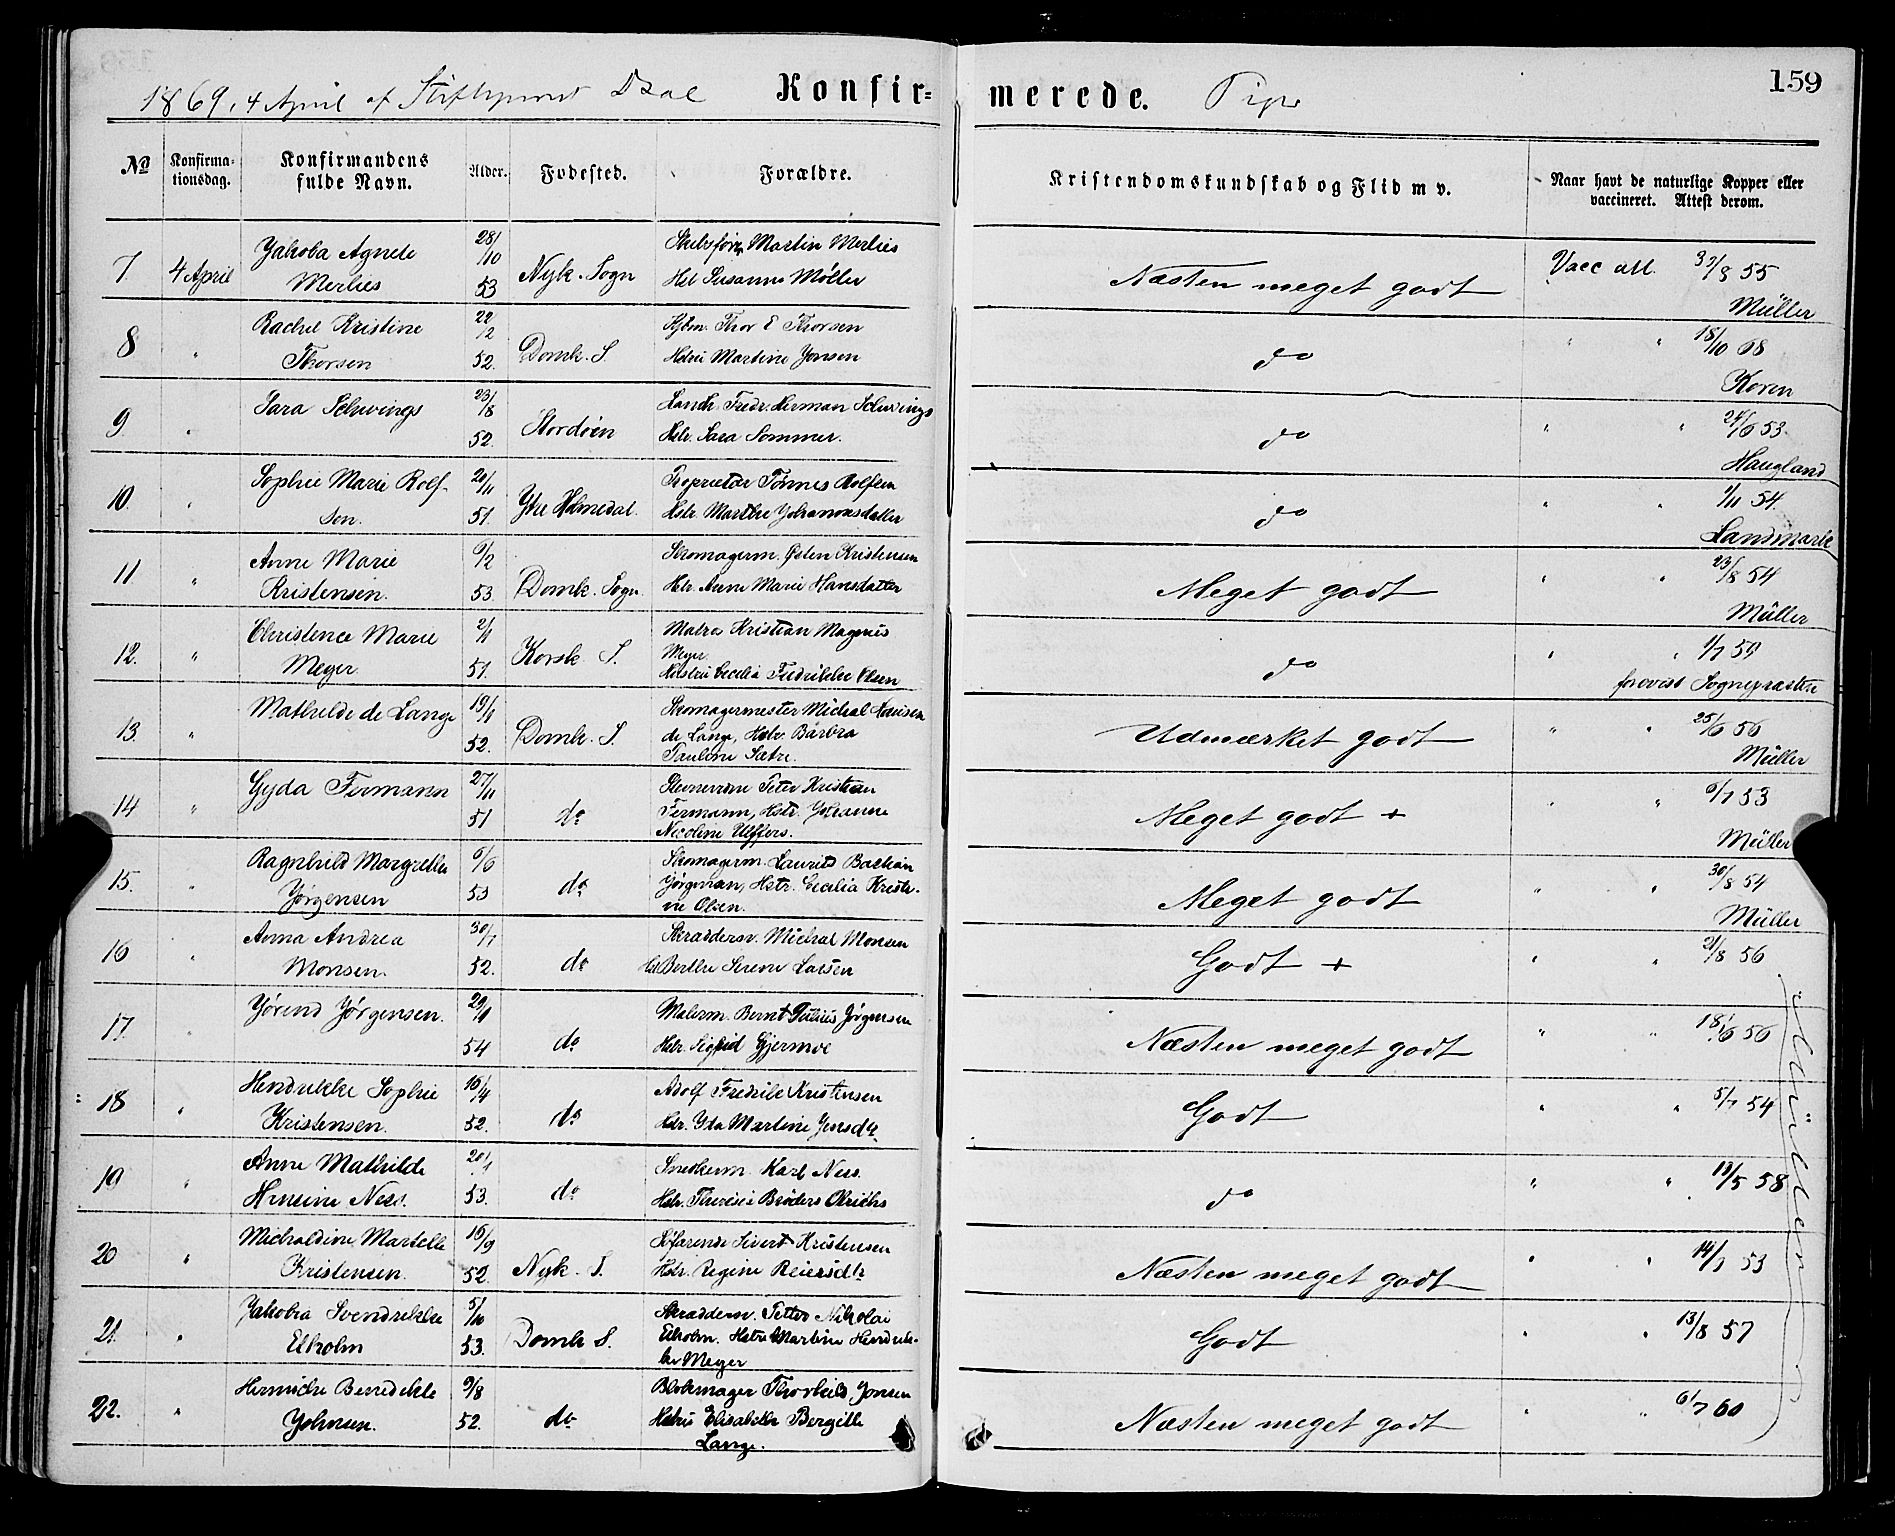 159
1869, 4 April af Stiftsprovst Dzae Konfir= merede. Piger
№ Konfirma- tionsdag. Konfirmandens fulde Navn. Alder. Fødested. Forældre. Kristendomskundskab og Flid m v. Naar havt de naturlige Kopper eller vaccineret. Attest derom.
7 4 April Jakoba Agnete Merlies 28/10 53 Nyk. Sogn Martin Merlies Hst Susanne Møller Næsten meget godt Vacc att. /8 55 Müller
8 " Rachel Kristine Thorsen 52. Domk. S. Thor E Thorsen Hstru Martine Jonsen do " " 18/10 68 Koren
9 " Sara Schwings 23/8 52. Stordøen Fredr. Herman Schwings Hstr. Sara Sommer. do " " 53 Haugland
10. " Sophie Marie Rolf- sen. 20/11 51. Ytre Holmedal Proprietær Tønnes Rolfsen Hstr. Marthe Johannesdatter do " " 1/11 54. Landmark
11 " Anne Marie Kristensen. 6/2 53. Domk. Sogn. Skomagerm. Østen Kristensen Hstr. Anne Marie Hansdatter Meget godt " " 23/8 54 Müller
12. " Christence Marie Meyer 51. Korsk S. Matros Kristian Magnus Meyer. Hustru Cecilia Fredrikke Olsen do " " 1/7 59 forevist Sognepræsten
13. " Mathilde de Lange 52. Domk. S. Skomagermester Michal Hansen de Lange, Hstr Barbra Pauline Sætre. Udmærket godt " " 25/6 56 Müller
14 " Gyda Fermann 27/11 51 do Peter Kristian Fermann, Hstr. Johanne Nicoline Ulffers. Meget godt + " " 6/7 53 Müller
15. " Ragnhild Margrethe Jørgensen 6/6 53 do Skomagerm. Laurits Bastian Jørgensen, Hstr. Cecilia Kristi- ne Olsen. Meget godt " " 30/8 54 Müller
16 " Anna Andrea Monsen. 30/7 52. do Skrædderm. Michal Monsen Hst Berthe Serene Larsen Godt + " " 21/8 56
17. " Jørend Jørgensen. 54 do Malerm. Bernt Julius Jørgensen Hstr. Sigrid Gjermoe Næsten meget godt " " 18/6 56
18 " Hendrikke Sophie Kristensen. 16/4 52. do Adolf Fredrik Kristensen Hstr. Ida Martine Jensdtr. Godt " " 5/7 54
19 " Anne Mathilde Hansine Ness. 20/1 53. do Snedkerm. Karl Ness. Hstr. Theresia Brøders do " " 19/5 58
20 " Michaldine Martelle Kristensen. 16/9 52. Nyk. S. Søfarende Sivert Kristensen Hstr. Regine Reiersdtr Næsten meget godt " " 14/7 53
21. " Jakoba Svendrikke Ekholm 5/10 53. Domk S. Skrædderm. Petter Nikolai Ekholm. Hstru Martine Hendrik- ke Meyer Godt " " 13/8 57
22. " Benedikte Johnsen. 9/8 52. do Blokmager Thorkild Jonsen Hstru Elisabeth Bergitte Lange. Næsten meget godt " " 6/7 60